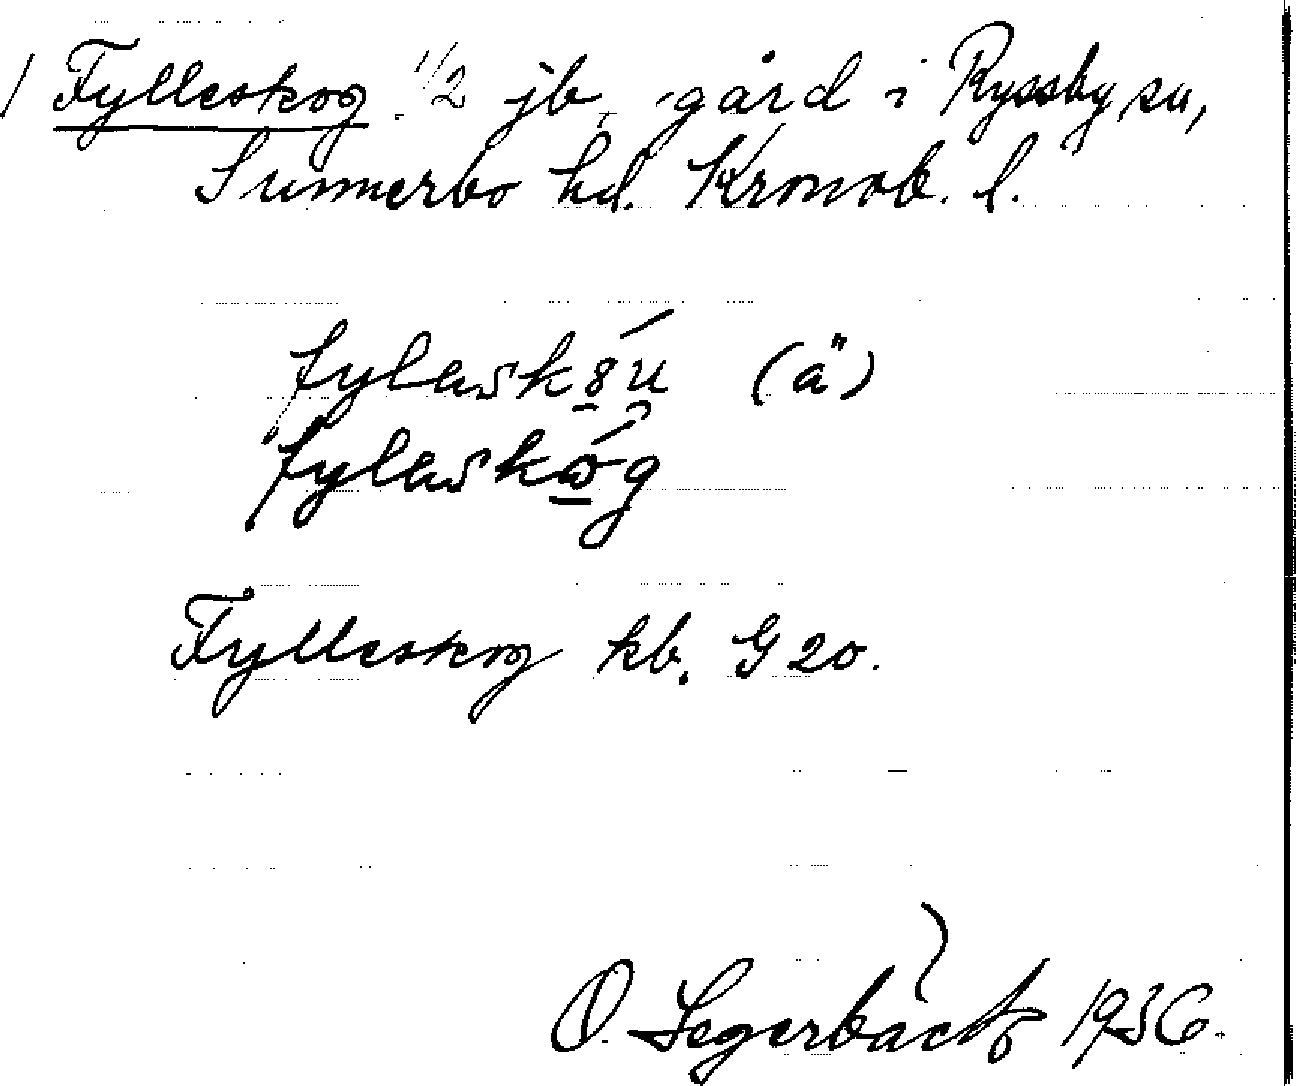 / Fylleskog. 1/2 jb, gård i Ryssby sn,
Sunnerbo hd. Kronob. l.
fylaskȣ́u (ä)
fylaskǫ́g
Fylleskog kb. G 20.
O. Segerbäck 1936.